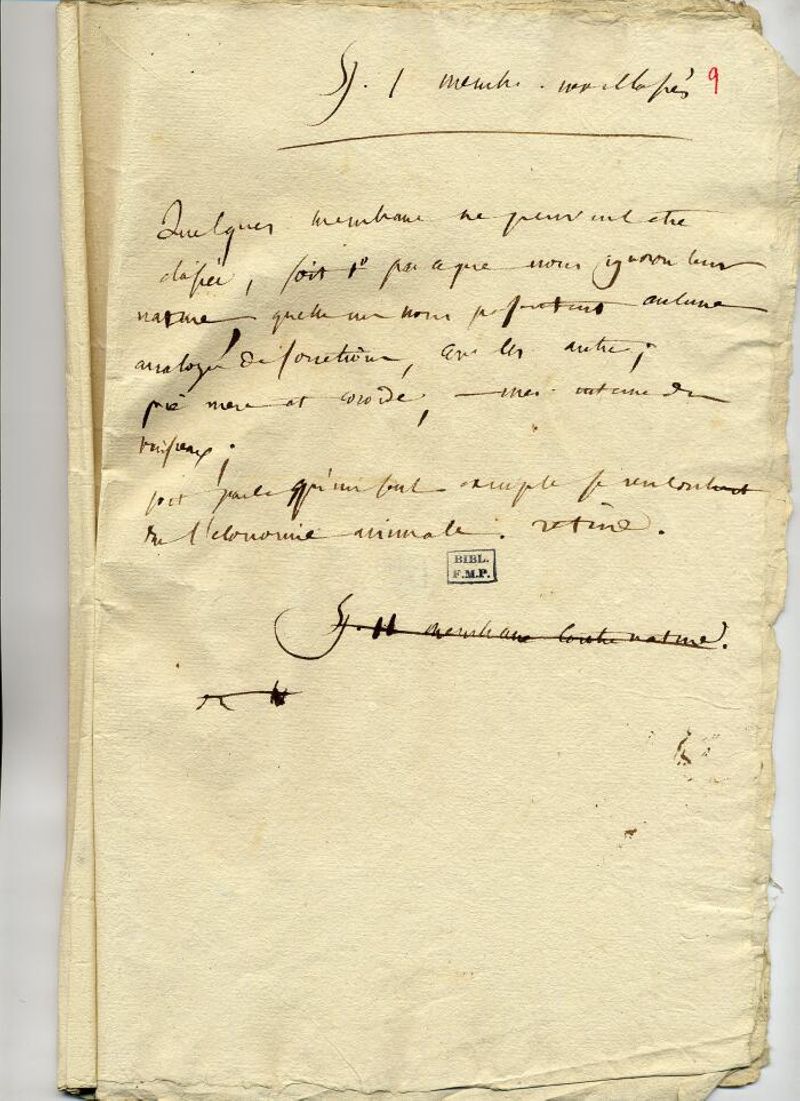 §. I membr. non classées 9
Quelques membrane ne peuvent etre
classées, soit 1° parceque nous ignoron leur
nature, quelle ne nous presentent aucune
analogie de fonctions, avec les autre;
pie mere et coroïde, interne des
vaisseaux;
soit parce qu'un seul exemple se rencontrent
de l'economie animale. retine.
BIBL.
F.M.P.
§. II membrane contre nature.